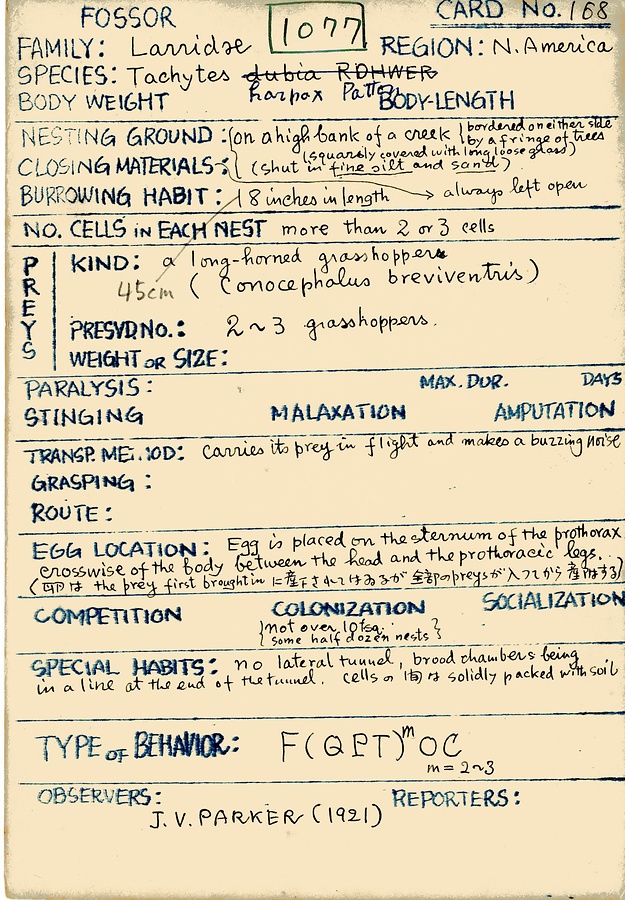 FOSSOR 1077 CARD NO. 168
FAMILY: Larridae REGION: N. America
SPECIES: Tachytes dubia ROHWER
BODY WEIGHT harpax Patton BODY-LENGTH
NESTING GROUND: on a high bank of a creek bordered on either side by a fringe of trees
(squarsly covered with long loose grass)
CLOSING MATERIALS: (shut in fine silt and sand)
BURROWING HABIT: 18 inches in length → always left open
NO. CELLS in EACH NEST more than 2 or 3 cells
PREYS
KIND: a long-horned grasshoppers
45cm (Conocephalus breviventris)
PRESVD NO.: 2~3 grasshoppers.
WEIGHT OR SIZE:
PARALYSIS: MAX. DUR. DAYS
STINGING MALAXATION AMPUTATION
TRANSP. ME. .OD: Carries its prey in flight and makes a buzzing noise
GRASPING:
ROUTE:
EGG LOCATION: Egg is placed on the sternum of the prothorax
crosswise of the body between the head and the prothoracic legs.
(卵は the prey first brought in に産下されてはゐるが 全部のpreysが入つてから産附する)
COMPETITION COLONIZATION SOCIALIZATION
not over 10 fsq.
some half dozen nests
SPECIAL HABITS: no lateral tunnel, brood chambers being
in a line at the end of the tunnel. cells の間は solidly packed with soil
TYPE OF BEHAVIOR: F(QPT)ᵐOC
m = 2~3
OBSERVERS: REPORTERS:
J. V. PARKER (1921)